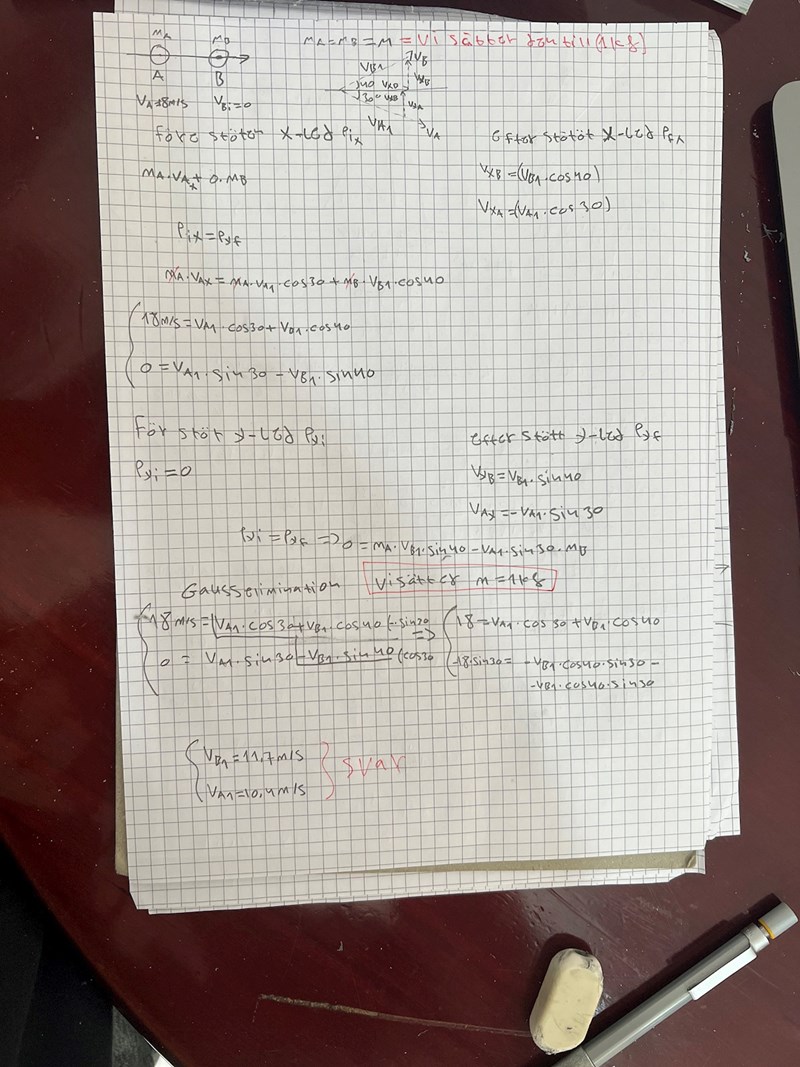 MA MB MA=MB=M = Vi sätter den till (1kg)
A B
VB1 VB
VXB
40 VXB
30
VA1 VA
VA=18m/s VBi=0
före stöten X-led Pix Efter stötöt X-led Pfx
MA·VAx+ 0·MB VXB=(VB1·cos40)
VXA=(VA1·cos30)
Pix=Pxf
MA·VAx=MA·VA1·cos30+MB·VB1·cos40
18m/s=VA1·cos30+VB1·cos40
0=VA1·sin30-VB1·sin40
För stöt y-led Pyi Efter stött y-led Pyf
Pyi=0 VyB=VB1·sin40
VAy=-VA1·sin30
Pyi=Pyf => 0=MA·VB1·sin40-VA1·sin30·MB
Gausselimination Vi sätter m=1kg
18m/s=VA1·cos30+VB1·cos40 (-sin30 => 18=VA1·cos30+VB1·cos40
0 = VA1·sin30-VB1·sin40 (cos30 -18·sin30= -VB1·cos40·sin30-
-VB1·cos40·sin30
VB1=11,7m/s
VA1=10,4m/s
svar